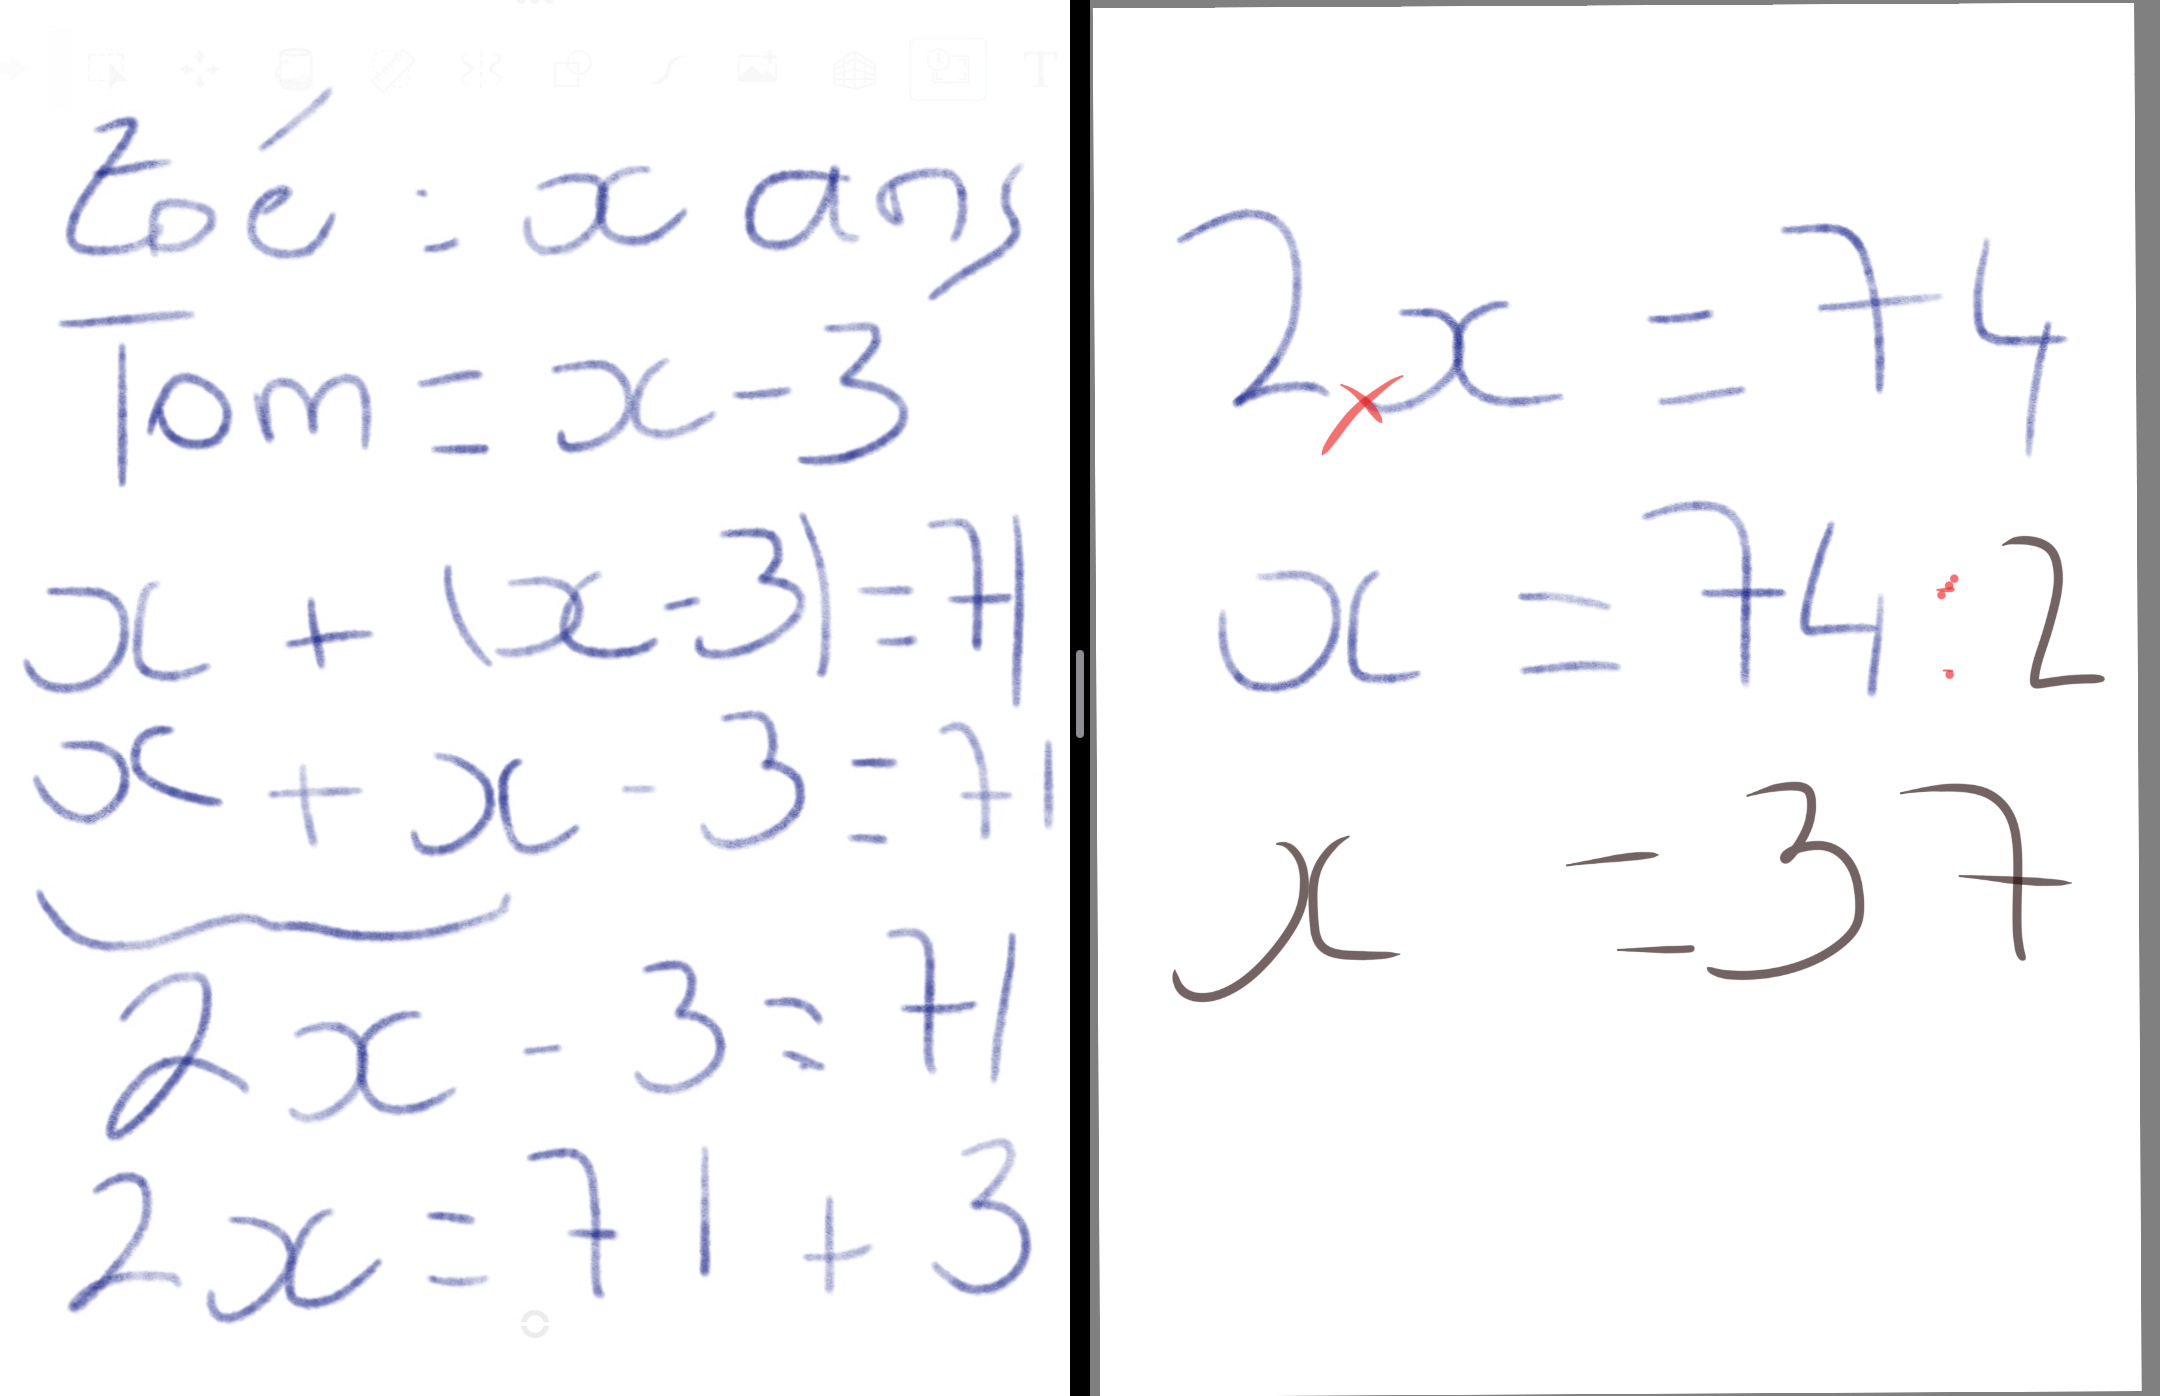 Zoé : x ans
Tom = x - 3
x + (x - 3) = 71
x + x - 3 = 71
2x - 3 = 71
2x = 71 + 3
2×x = 74
x = 74 : 2
x = 37